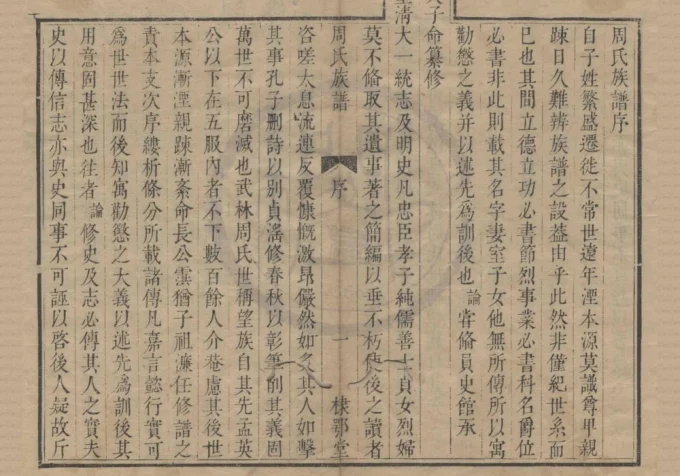 周氏族譜序
自子姓繁盛遷徙不常世遠年湮本源莫識尊卑親
踈日久難辨族譜之設葢由乎此然非僅紀世系而
已也其間立德立功必書節烈事業必書科名爵位
必書非此則載其名字妻室子女他無所傳所以寓
勸懲之義并以述先爲訓後也論甞偹員史館承
天子命纂修
皇淸大一統志及明史凡忠臣孝子純儒善士貞女烈婦
莫不偹取其遺事著之簡編以垂不朽使後之讀者
周氏族譜 序 一 棣鄂堂
咨嗟大息流連反覆慷慨激昂儼然如名其人如擊
其事孔子刪詩以別貞滛修春秋以彰筆削其義固
萬世不可磨滅也武林周氏世稱望族自其先孟英
公以下在五服內者不下數百餘人介菴慮其後世
本源漸湮親踈漸紊命長公雲猶子祖濂任修譜之
責本支次序縷析條分所載諸傳凡嘉言懿行實可
爲世世法而後知寓勸懲之大義以述先爲訓後其
用意固甚深也往者論修史及志必傳其人之實夫
史以傳信志亦與史同事不可誣以啓後人疑故斤